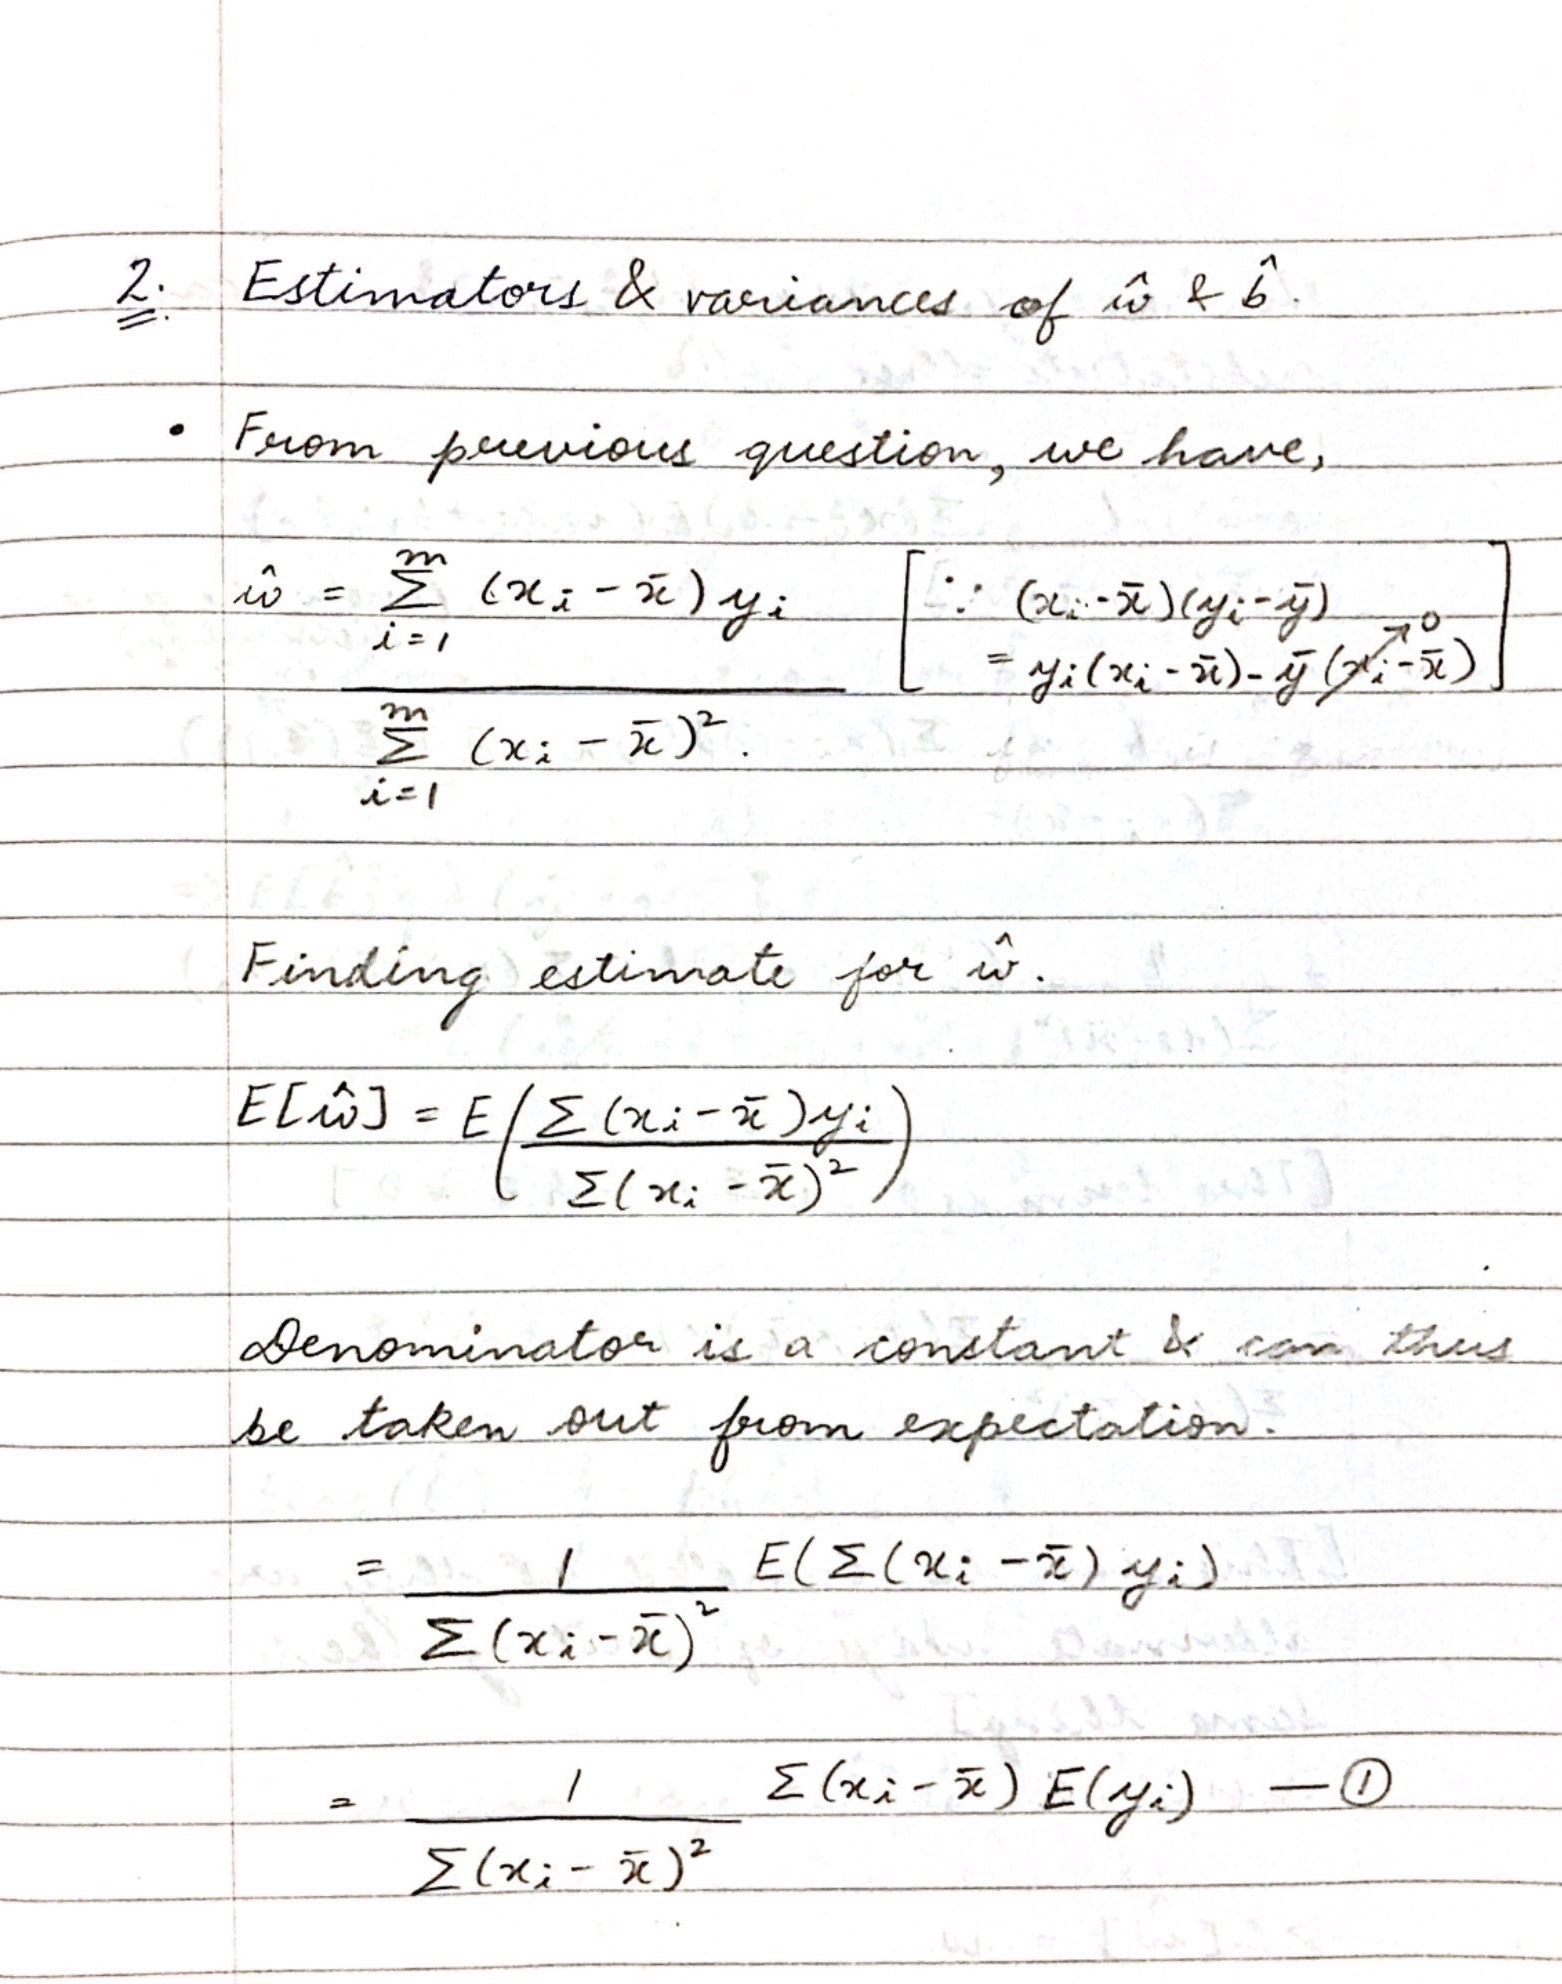 2. Estimators & variances of ŵ & b̂.
• From previous question, we have,
ŵ = Σ_{i=1}^{m} (xᵢ - x̄) yᵢ / Σ_{i=1}^{m} (xᵢ - x̄)². [∵ (xᵢ - x̄)(yᵢ - ȳ)
= yᵢ(xᵢ - x̄) - ȳ(xᵢ - x̄)→0]
Finding estimate for ŵ.
E[ŵ] = E( Σ(xᵢ - x̄)yᵢ / Σ(xᵢ - x̄)² )
Denominator is a constant & can thus
be taken out from expectation.
= 1 / Σ(xᵢ - x̄)² E(Σ(xᵢ - x̄) yᵢ)
= 1 / Σ(xᵢ - x̄)² Σ(xᵢ - x̄) E(yᵢ) — ①